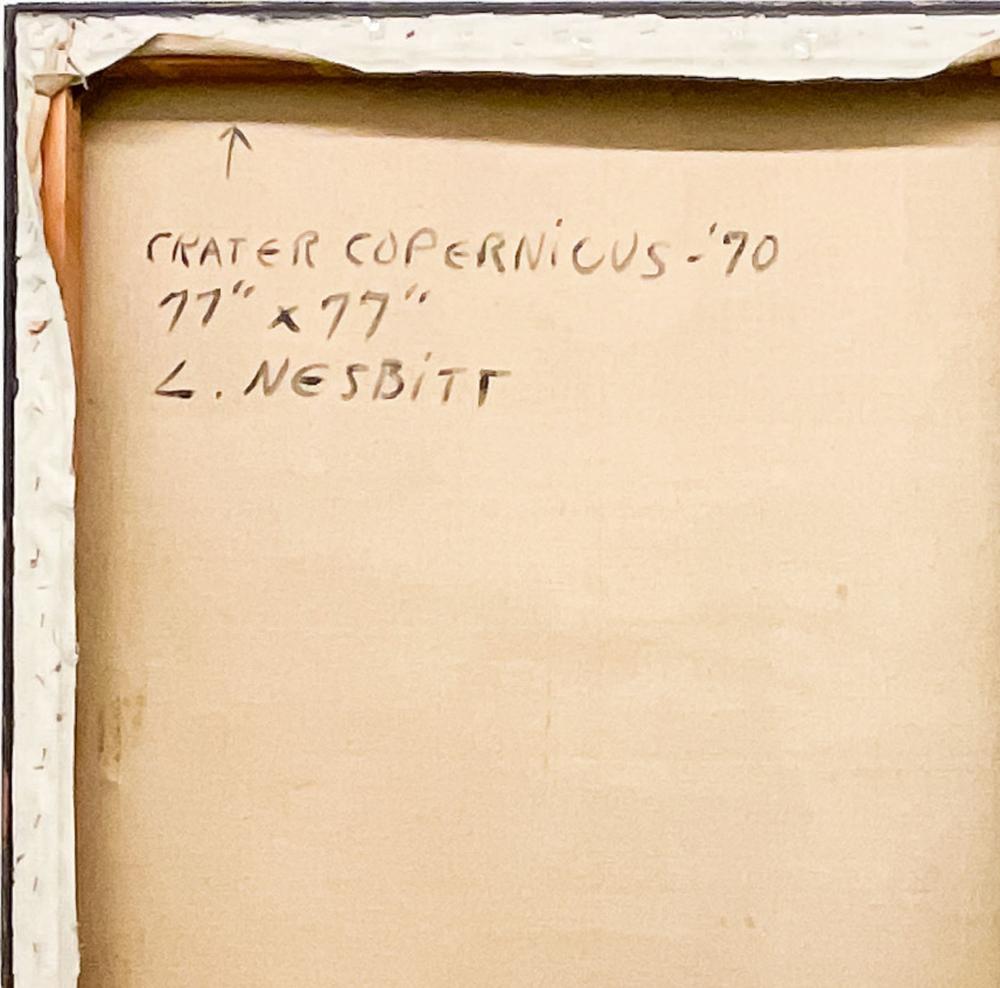 ↑
CRATER COPERNiCUS - '70
77" x 77"
L. NESBiTT